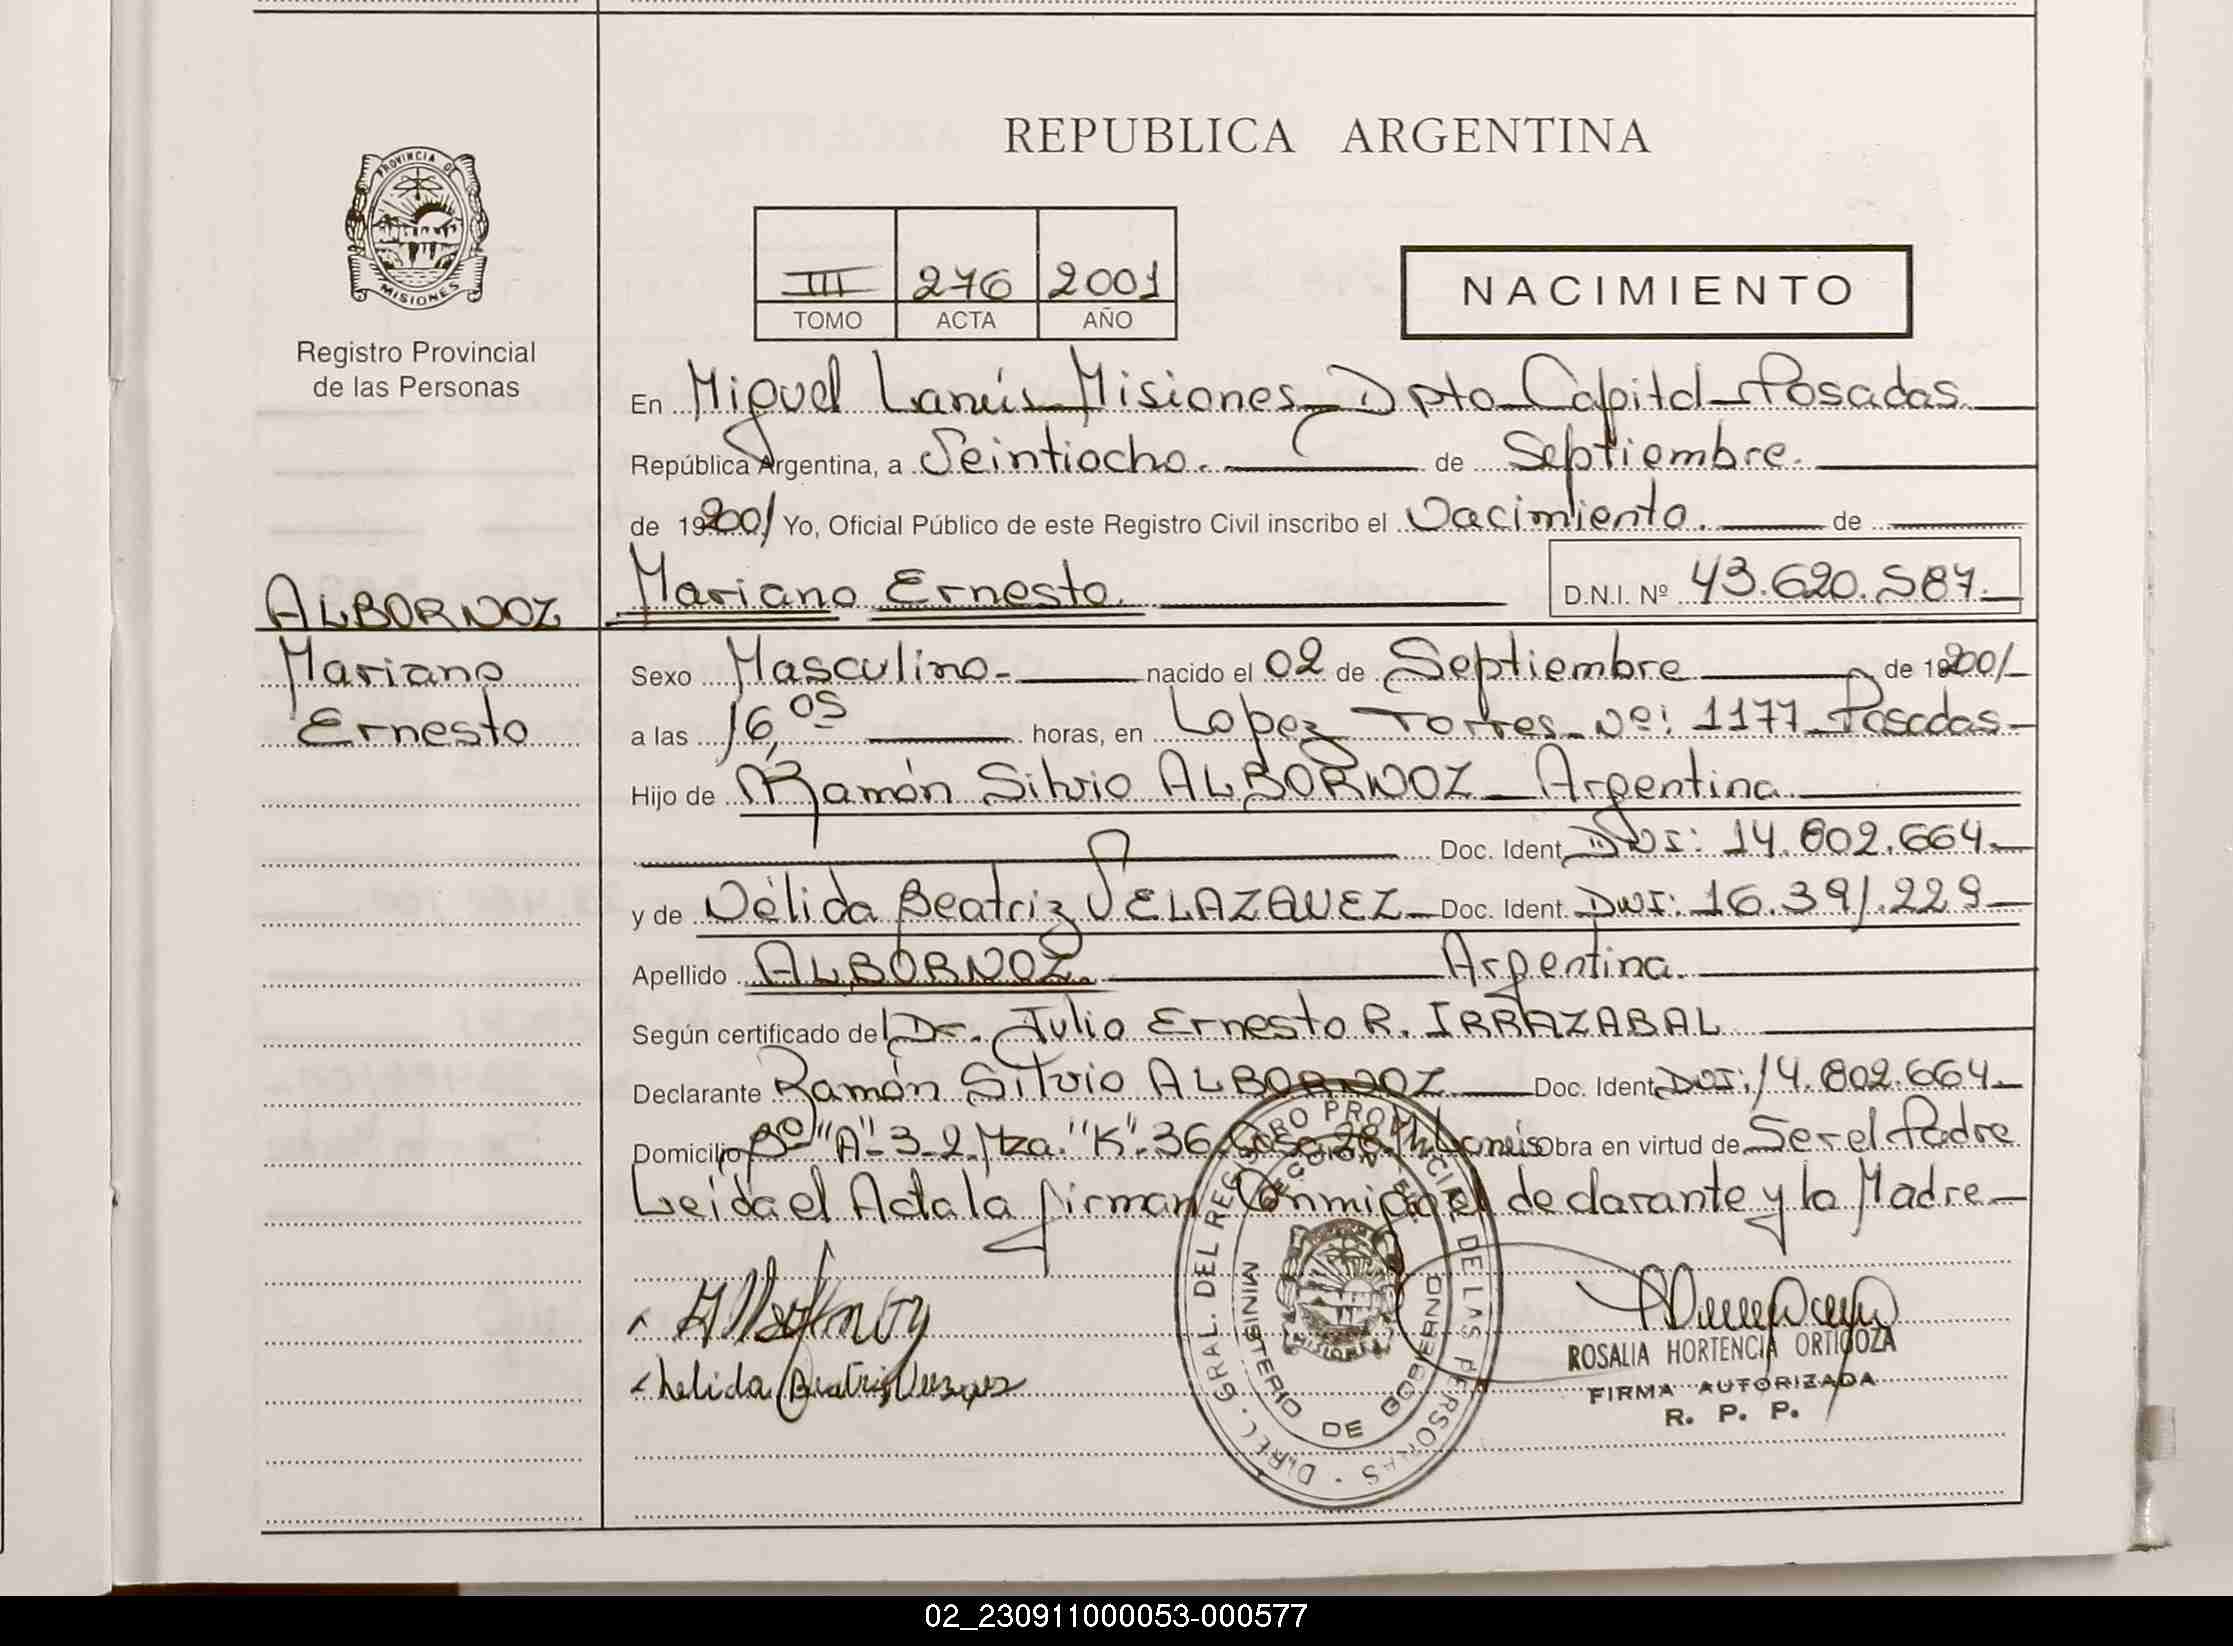 PROVINCIA DE
MISIONES
Registro Provincial
de las Personas
REPUBLICA ARGENTINA
III 276 2001
TOMO ACTA AÑO
NACIMIENTO
En Miguel Lanús Misiones Dpto Capital Posadas
República Argentina, a Veintiocho. de Septiembre.
de 192001 Yo, Oficial Público de este Registro Civil inscribo el Nacimiento. de
ALBORNOZ
Mariano
Ernesto
Mariano Ernesto. D.N.I. Nº 43.620.587.
Sexo Masculino nacido el 02 de Septiembre de 192001
a las 16,05 horas, en Lopez Torres Nº: 1177 Posadas
Hijo de Ramón Silvio ALBORNOZ Argentina
Doc. Ident. DNI: 14.802.664
y de Nélida Beatriz VELAZQUEZ Doc. Ident. DNI: 16.391.229
Apellido ALBORNOZ. Argentina.
Según certificado del Dr. Julio Ernesto R. IRRAZABAL
Declarante Ramón Silvio ALBORNOZ Doc. Ident. DNI: 14.802.664
Domicilio Bº "A"-3-2 Mza. "K"-36 Casa 28 M. Lanús Obra en virtud de Ser el Padre
Leida el Acta la firman Conmigo el declarante y la Madre
DIREC. GRAL. DEL REGISTRO PROVINCIAL DE LAS PERSONAS
MINISTERIO DE GOBIERNO
MISIONES
ROSALIA HORTENCIA ORTIGOZA
FIRMA AUTORIZADA
R. P. P.
02_230911000053-000577